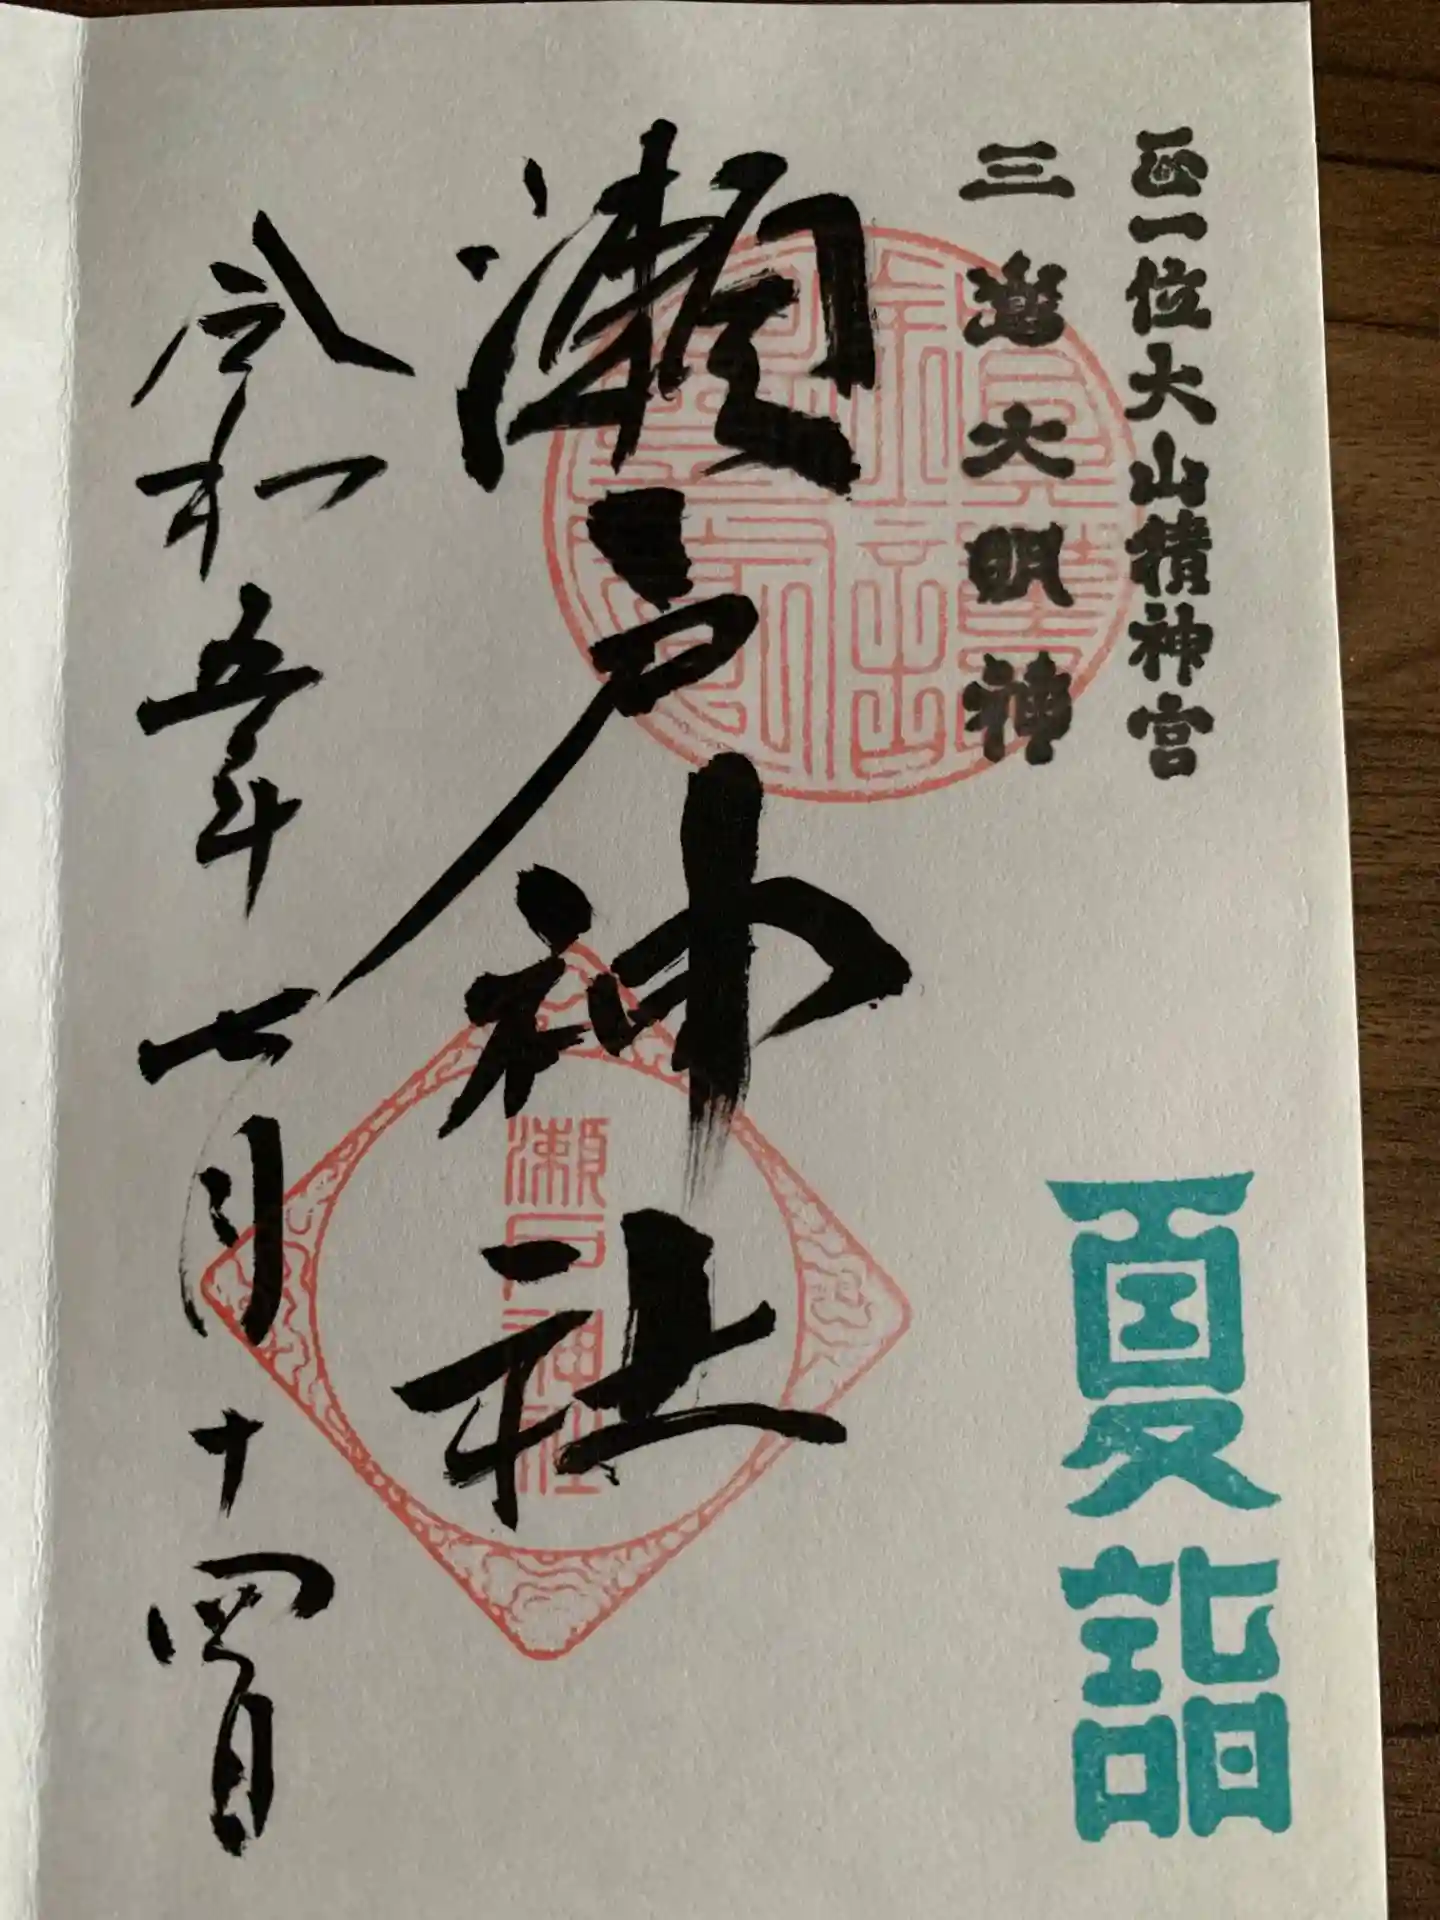 正一位大山積神宮
三嶌大明神
夏詣
瀬戸神社
令和五年七月十四日
瀬戸神社